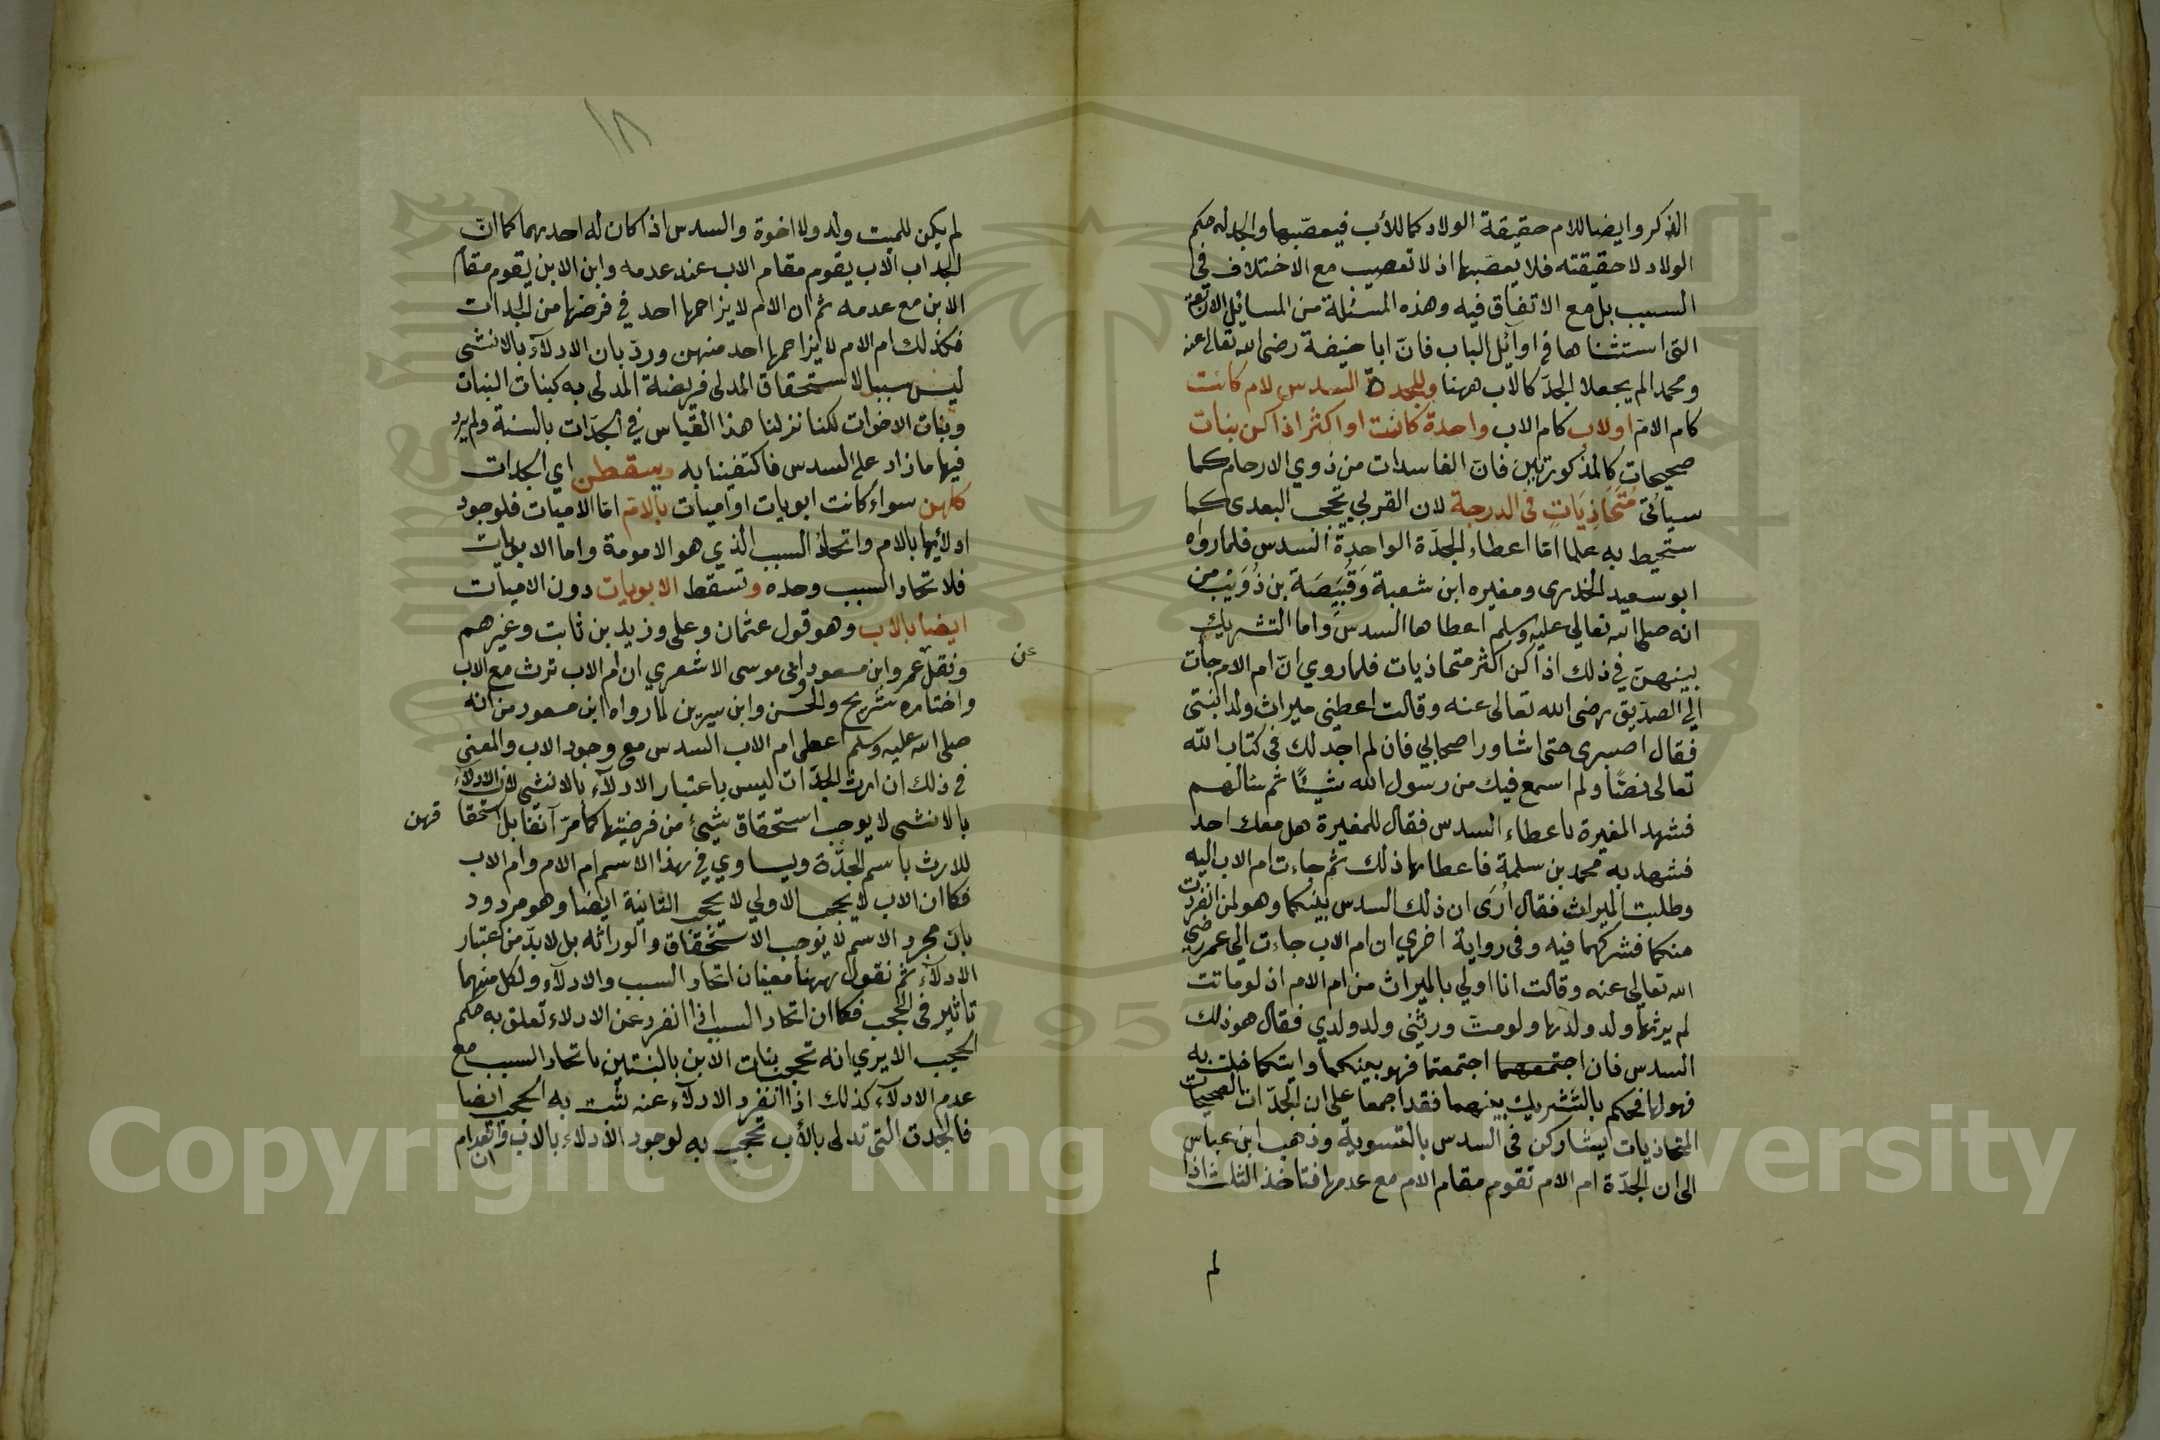 الذكر وايضا للام حقيقة الولاد كما للأب فيعصّبها والجد له حكم
الولاد لا حقيقته فلا يعصبها اذ لا تعصيب مع الاختلاف في
السبب بل مع الاتفاق فيه وهذه المسئلة من المسائل الاربعة
التى استثناها في اوائل الباب فانّ ابا حنيفة رضى الله تعالى عنه
ومحمدا لم يجعلا الجدّ كالاب ههنا وللجدة السدس لام كانت
كام الام او لاب كام الاب واحدة كانت او اكثر اذا كن بنات
صحيحات كالمذكورتين فانّ الفاسدات من ذوي الارحام كما
سيأتى مُتَحَاذِيَاتٍ فى الدرجة لان القربي تحجب البعدى كما
ستحيط به علما امّا اعطاء الجدّة الواحدة السدس فلما رواه
ابو سعيد الخدري ومغيره ابن شعبة وَقُبَيصَة بن ذُوَيب من
انه صلى الله تعالي عليه وسلم اعطاها السدس واما التشريك
بينهنّ في ذلك اذا كن اكثر متحاذيات فلما روي انّ ام الام جأت
الي الصدّيق رضى الله تعالى عنه وقالت اعطني ميراث ولد ابنتى
فقال اصبرى حتى اشاور اصحابي فان لم اجد لك فى كتاب الله
تعالى نصًّا ولم اسمع فيك من رسول الله شيئًا ثم سئالهم
فشهد المغيرة باعطاء السدس فقال للمغيرة هل معك احد
فشهد به محمد بن سلمة فاعطاها ذلك ثم جاءت ام الاب اليه
وطلبت الميراث فقال ارى ان ذلك السدس بينكما وهو لمن انفرت
منكما فشركهما فيه وفى رواية اخري ان ام الاب جاءت الي عمر رضى
الله تعالي عنه وقالت انا اولي بالميراث من ام الام اذ لو ماتت
لم يرثها ولد ولدها ولو متّ ورثنى ولد ولدي فقال هو ذلك
السدس فان اجتمعهما اجتمعتما فهو بينكما وايتكما خلت به
فهو لها فحكم بالتشريك بينهما فقد اجمعا على ان الجدّات الصحيحات
المتحاذيات يتشاركن فى السدس بالتسوية وذهب ابن عباس
الى ان الجدّة ام الام تقوم مقام الام مع عدمها فتاخذ الثلث اذا
لم
١٨
لم يكن للميت ولد ولا اخوة والسدس اذا كان له احدهما كما انّ
الجد اب الاب يقوم مقام الاب عند عدمه وابن الابن يقوم مقام
الابن مع عدمه ثم ان الام لا يزاحمها احد في فرضها من الجدات
فكذلك ام الام لا يزاحمها احد منهن وردّ بان الادلآء بالانثى
ليس سببا لاستحقاق المدلى فريضة المدلى به كبنات البنات
وبنات الاخوات لكنا نزلنا هذا القياس في الجدّات بالسنة ولم يرد
فيها ما زاد على السدس فاكتفينا به ويسقطن اي الجدات
كلهن سواء كانت ابويات او اميات بالام امّا الاميات فلوجود
ادلائها بالام واتحاد السبب الذي هو الامومة واما الابويات
فلاتحاد السبب وحده وتسقط الابويات دون الاميات
ايضا بالاب وهو قول عثمان وعلى وزيد بن ثابت وغيرهم
ونقل عمر وابن مسعود وابى موسى الاشعري ان ام الاب ترث مع الاب
عن
واختاره شريح والحسن وابن سيرين لما رواه ابن مسعود من انه
صلى الله عليه وسلم اعطى ام الاب السدس مع وجود الاب والمعنى
فى ذلك ان ارث الجدّات ليس باعتبار الادلآء بالانثى لان الادلاء
بالانثى لا يوجب استحقاق شيئ من فرضيتها كما مرّ آنفا بل استحقا
قهن
للارث باسم الجدّة ويساوي في هذا الاسم ام الام وام الاب
فكما ان الاب لا يحجب الاولي لا يحجب الثانية ايضا وهو مردود
بان مجرد الاسم لا يوجب الاستحقاق والوراثه بل لا بدّ من اعتبار
الادلآء ثم نقول ههنا معنيان اتحاد السبب والادلآء ولكل منهما
تاثير فى الحجب فكما ان اتحاد السبب اذا انفرد عن الادلاء تعلق به حكم
الحجب الا يري انه تحجب بنات الابن بالبنتين باتحاد السبب مع
عدم الادلآء كذلك اذا انفرد الادلآء عنه ثبت به الحجب ايضا
فالجدة التى تدلى بالأب تحجب به لوجود الأدلاء بالاب وانعدام
ان